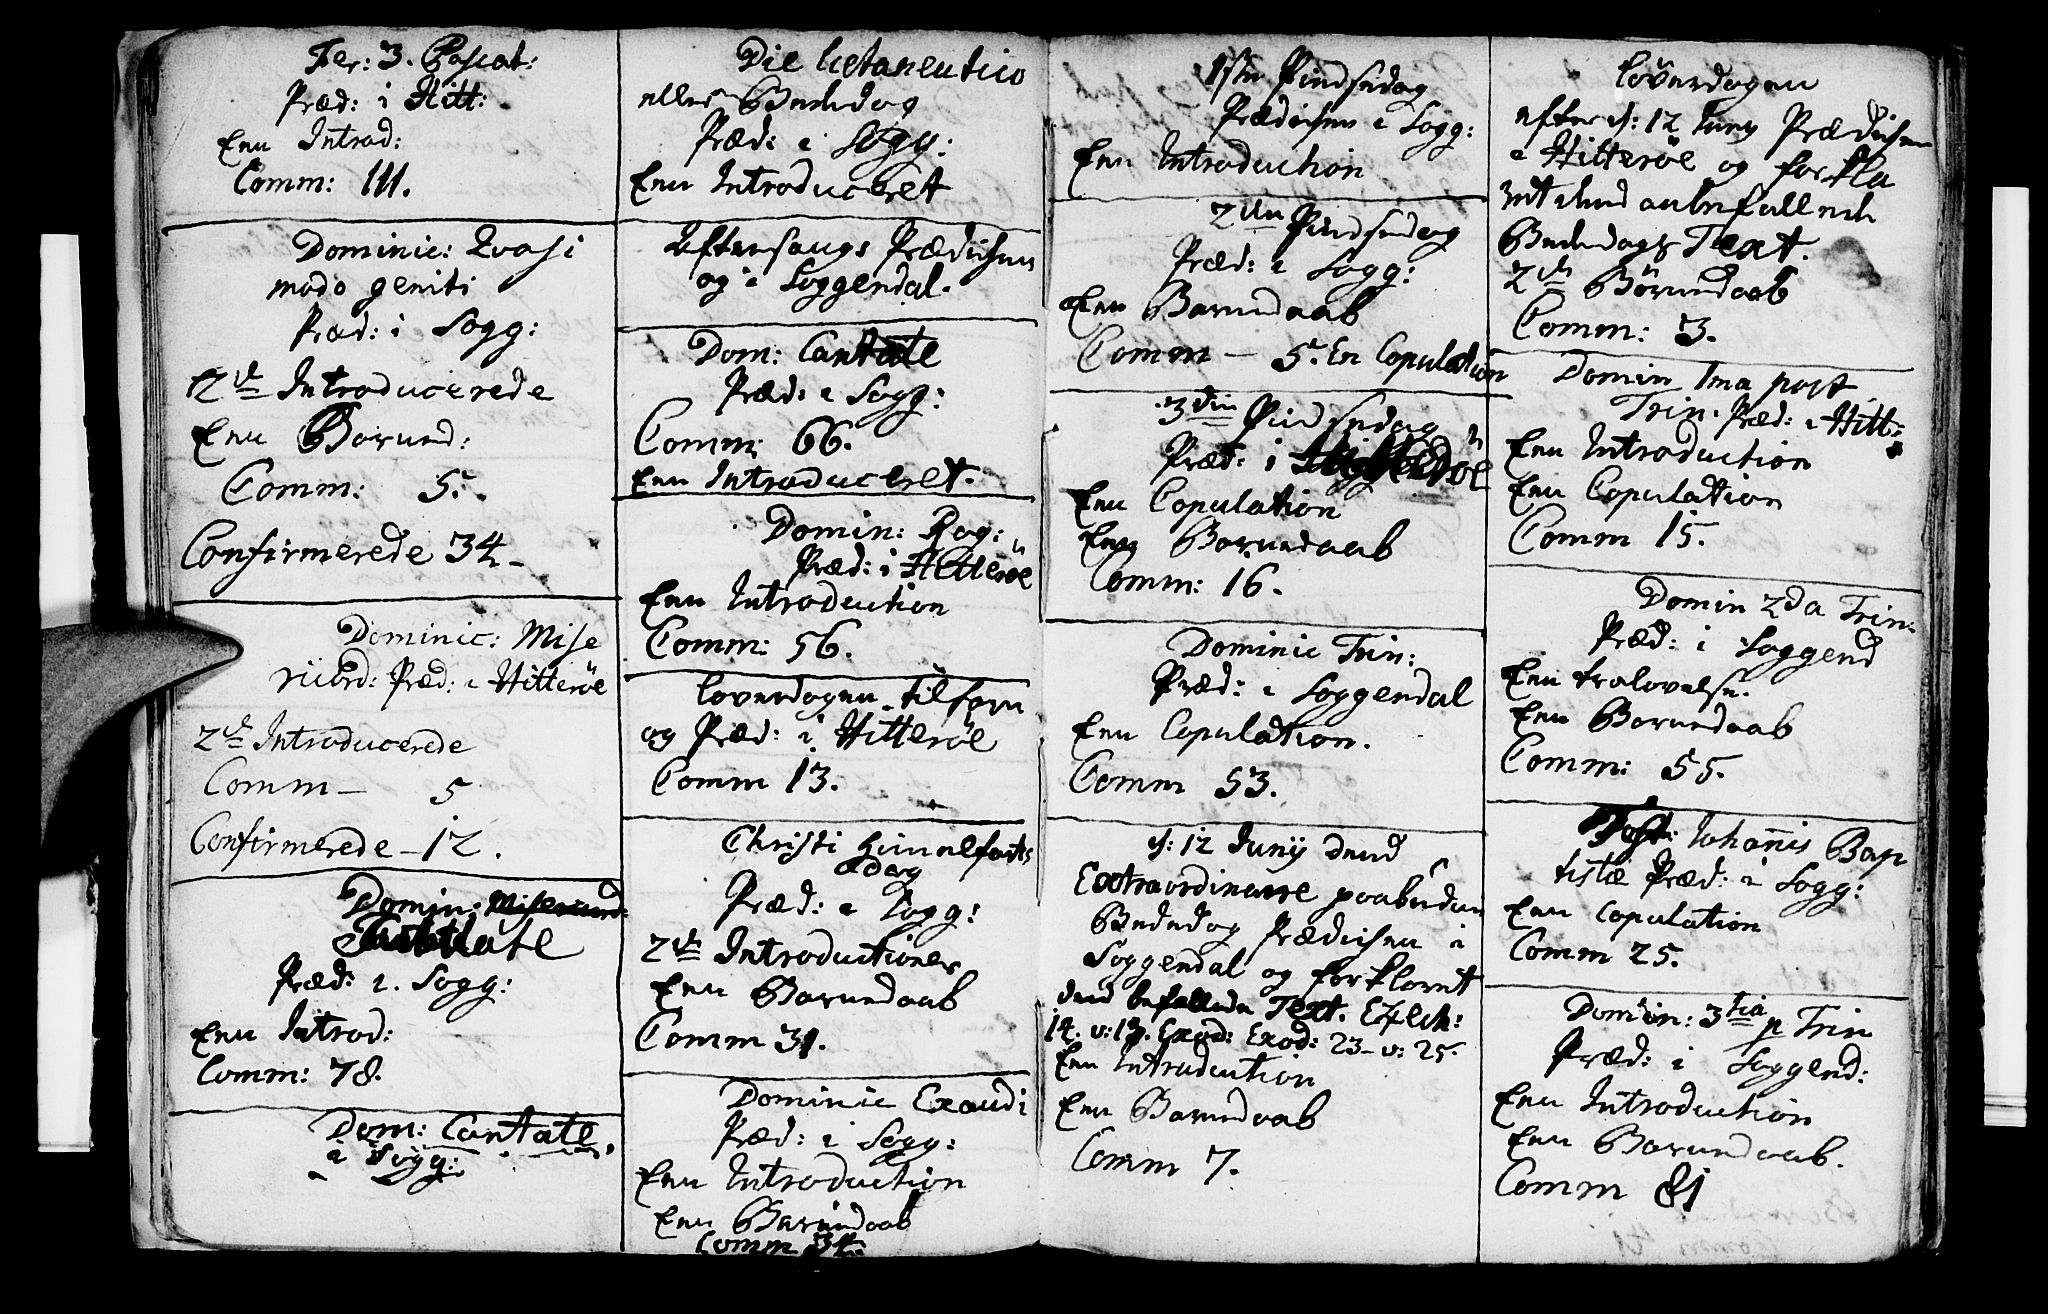 Fer: 3. Pascat:
Præd: i Hitt:
Een Introd:
Comm: 111.
Dominic: Qvasi
modo geniti
Præd: i Sogg:
2de Introducerede
Een Barund:
Comm: 5.
Confirmerede 34
Dominic: Mise
ricord: Præd: i Hitterøe
2de Introducerede
Comm — 5
Confirmerede — 12.
Domin:
Jubilate
Præd: i Sogg:
Een Introd:
Comm: 78.
Dom: Cantate
i Sogg:
Die
eller Beededag
Præd: i Sogg:
Een Introduceret
Aftensangs Prædichen
og i Soggendal.
Dom: Cantate
Præd: i Sogg:
Comm: 66.
Een Introduceret.
Domin: Rog:
Præd: i Hitterøe
Een Introduction
Comm: 56.
Løverdagen tilforn
og Præd: i Hitterøe
Comm 13.
Christi Himmelfarts
dag
Præd: i Sogg:
2de Introductioner
Een Barundaab
Comm 31.
Dominic Exaudi
Præd: i Sogg:
Een Introduction
Een Barundaab
Comm 34.
1ste Pindsedag
Prædichen i Sogg:
Een Introduction
2den Pindsedag
Præd: i Sogg:
Een Barundaab
Comm — 5. En Copulation
3die Pindsedag
Præd: i Hitterøe
Een Copulation
Een Barundaab
Comm: 16.
Dominic Trin:
Præd: i Soggendal
Een Copulation.
Comm 53.
d: 12 Junij dend
Extraordinarie paabudne
Bededag Prædichen i
Soggendal og forklaret
dend befallede Text. Ezech:
14. v: 13. Exod: 23 — v: 25.
Een Introduction
Een Barundaab
Comm 7.
Løverdagen
efter d: 12 Juny Prædichen
i Hitterøe og forkla
ret dend anbefallede
Beededags Text.
2de Børundaab
Comm: 3.
Domin 1ma post
Trin. Præd: i Hitt:
Een Introduction
Een Copulation
Comm 15.
Domin 2da Trin:
Præd: i Soggend
Een trolovelse.
Een Barundaab
Comm: 55.
Fest: Johannis Bap
tistæ Præd: i Sogg:
Een Copulation
Comm 25.
Domin: 3tia p Trin
Præd: i Soggend:
Een Introduction
Een Barundaab.
Comm 81